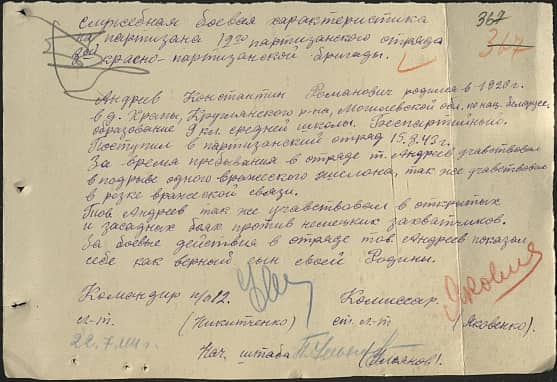 Служебная боевая характеристика
367
на партизана 19го партизанского отряда
367
2ой красно-партизанской бригады.
Андреев Константин Романович родился в 1920 г.
в д. Храпы, Круглянского р-на, Могилевской обл. по нац. белорус.
образование 9 кл. средней школы. Беспартийный.
Поступил в партизанский отряд 15.8.43 г.
За время пребывания в отряде т. Андреев участвовал
в подрыве одного вражеского эшелона, так же участвовал
в резке вражеской связи.
Тов Андреев так же участвовал в открытых
и засадных боях против немецких захватчиков.
За боевые действия в отряде тов. Андреев показал
себя как верный сын своей Родины.
Командир п/о 12. Комиссар
л-т. (Никитченко) ст. л-т (Яковенко).
22.7.44 г.
Нач. штаба (Ульянов).